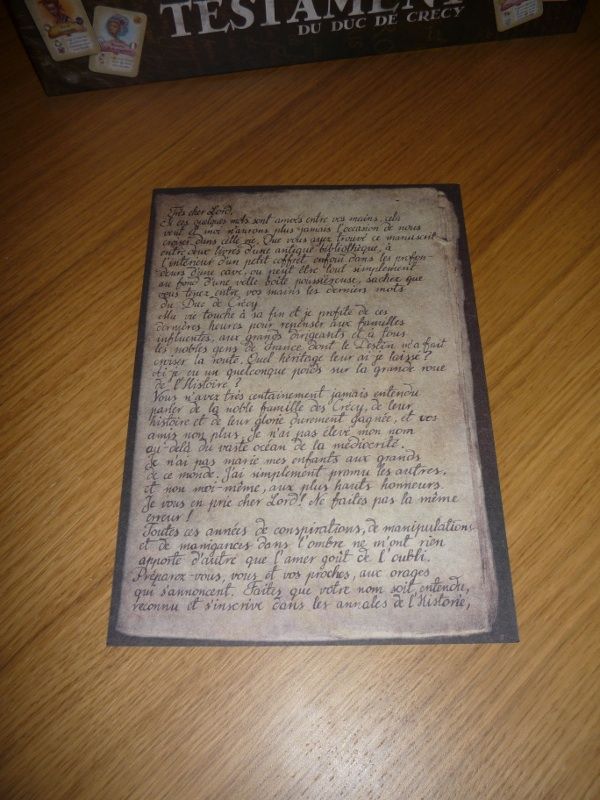 TESTAMENT
DU DUC DE CRÉCY
Très cher Lord,
Si ces quelques mots sont arrivés entre vos mains, cela
veut et moi n'aurons plus jamais l'occasion de nous
croiser dans cette vie. Que vous ayez trouvé ce manuscrit
entre deux livres d'une antique bibliothèque, à
l'intérieur d'un petit coffret enfoui dans les profon-
deurs d'une cave, ou peut être tout simplement
au fond d'une veille boîte poussiéreuse, sachez que
vous tenez entre vos mains les derniers mots
du Duc de Crécy.
Ma vie touche à sa fin et je profite de ces
dernières heures pour repenser aux familles
influentes, aux grands dirigeants et à tous
les nobles gens de France dont le Destin m'a fait
croiser la route. Quel héritage leur ai je laissé ?
Ai je eu un quelconque poids sur la grande roue
de l'Histoire ?
Vous n'avez très certainement jamais entendu
parler de la noble famille des Crécy, de leur
histoire et de leur gloire durement gagnée, et vos
amis non plus. Je n'ai pas élevé mon nom
au-delà du vaste océan de la médiocrité.
Je n'ai pas marié mes enfants aux grands
de ce monde. J'ai simplement promu les autres,
et non moi-même, aux plus hauts honneurs.
Je vous en prie cher Lord ! Ne faites pas la même
erreur !
Toutes ces années de conspirations, de manipulations
et de manigances dans l'ombre ne m'ont rien
apporté d'autre que l'amer goût de l'oubli.
Préparez-vous, vous et vos proches, aux orages
qui s'annoncent. Faites que votre nom soit entendu,
reconnu et s'inscrive dans les annales de l'Histoire,